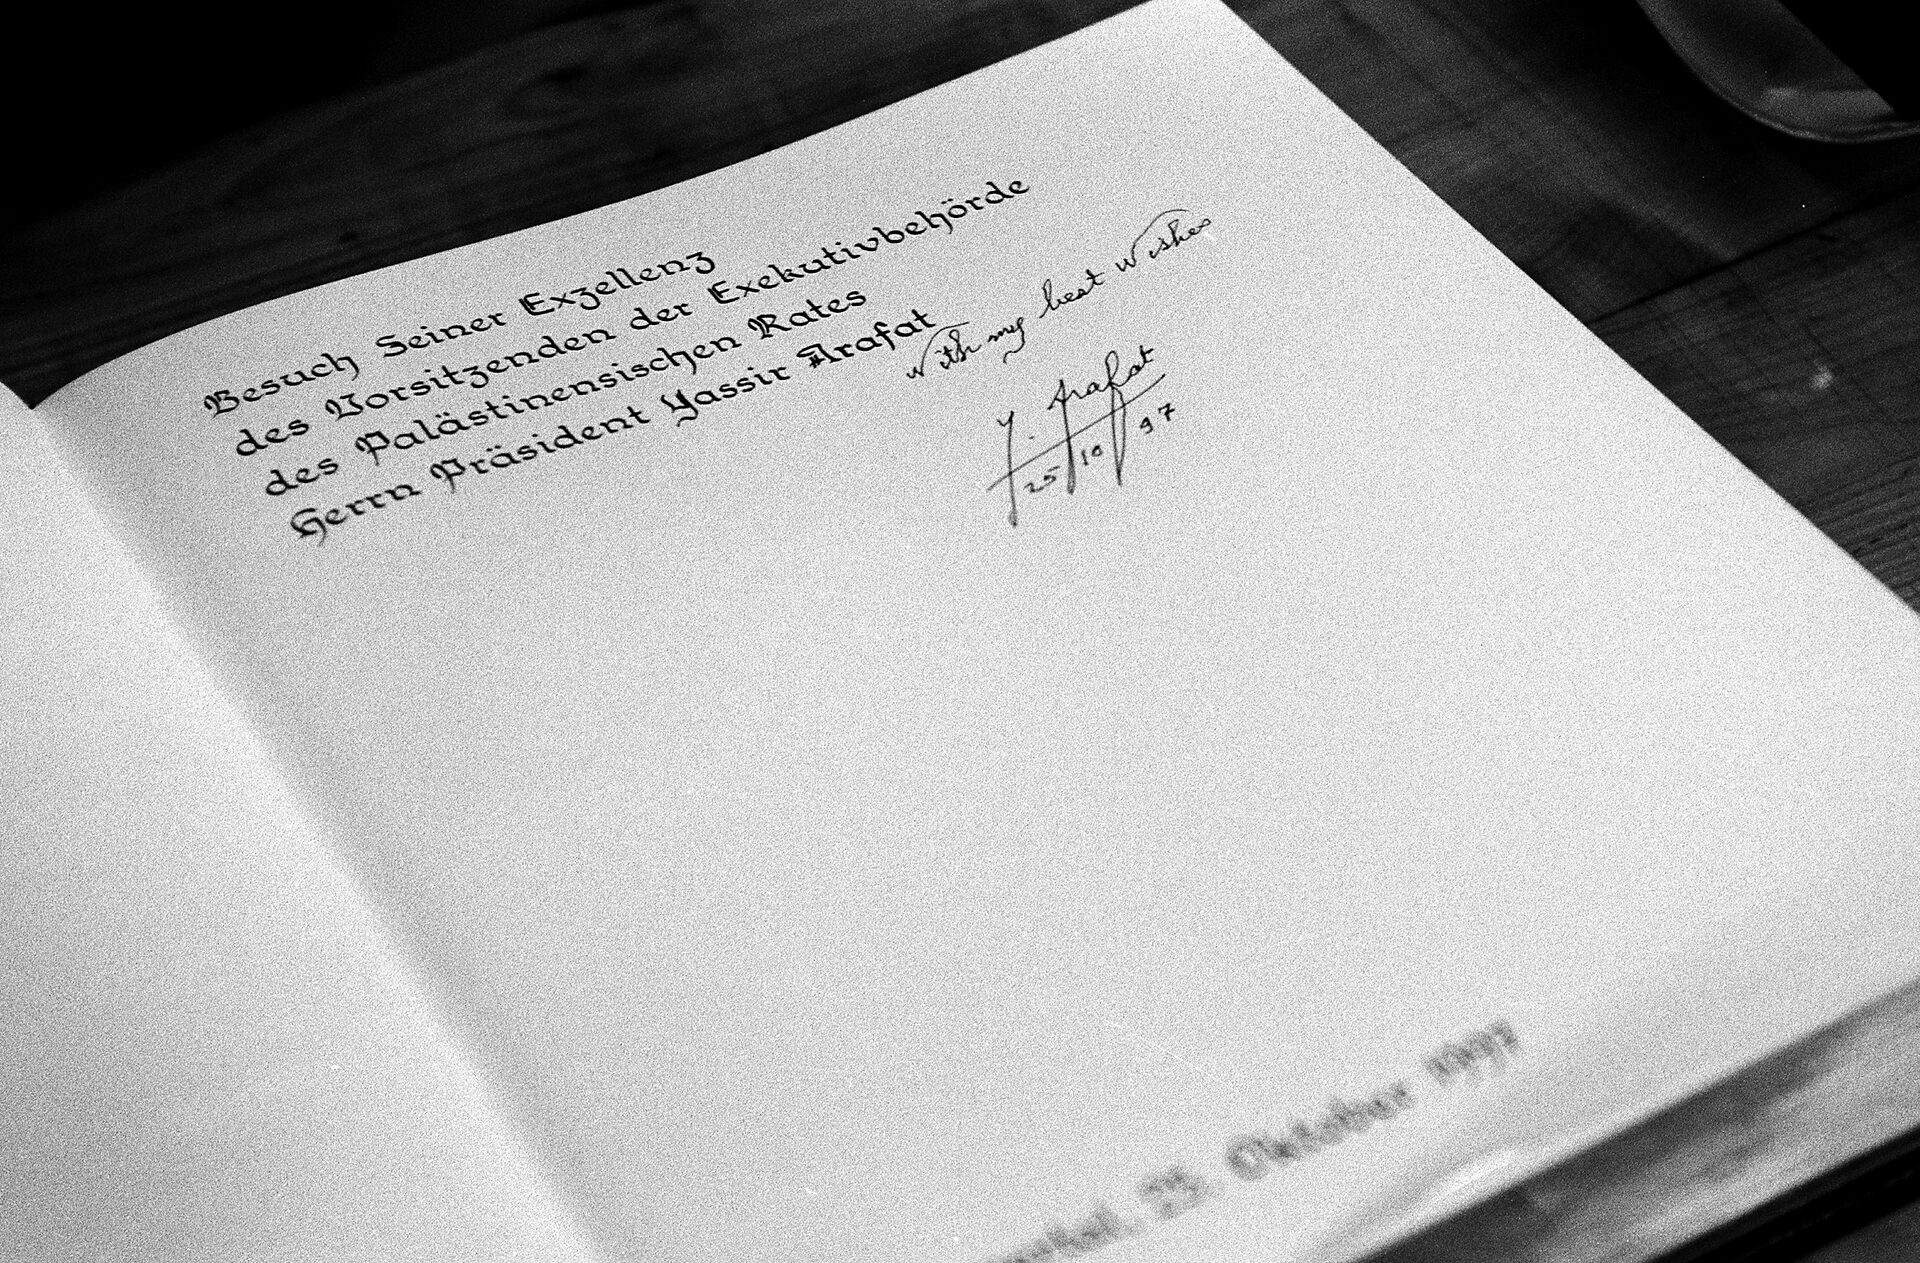 Besuch Seiner Exzellenz
des Vorsitzenden der Exekutivbehörde
des Palästinensischen Rates
Herrn Präsident Yassir Arafat
With my best wishes
Y. Arafat
25 10 97
25. Oktober 1997